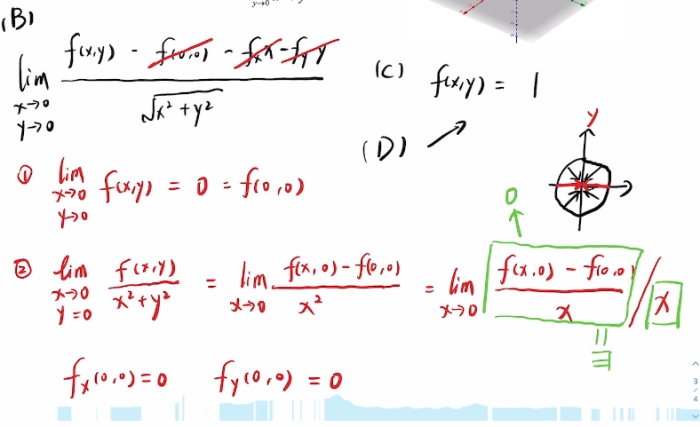 y→0
(B)
lim x→0 y→0 f(x,y) - f(0,0) - fₓx - f_y y / √x² + y²
(C) f(x,y) = 1
(D)
y
① lim x→0 y→0 f(x,y) = 0 = f(0,0)
0
② lim x→0 y=0 f(x,y) / x²+y² = lim x→0 f(x,0) - f(0,0) / x² = lim x→0 f(x,0) - f(0,0) / x / x
fₓ(0,0) = 0 f_y(0,0) = 0
3 / 4